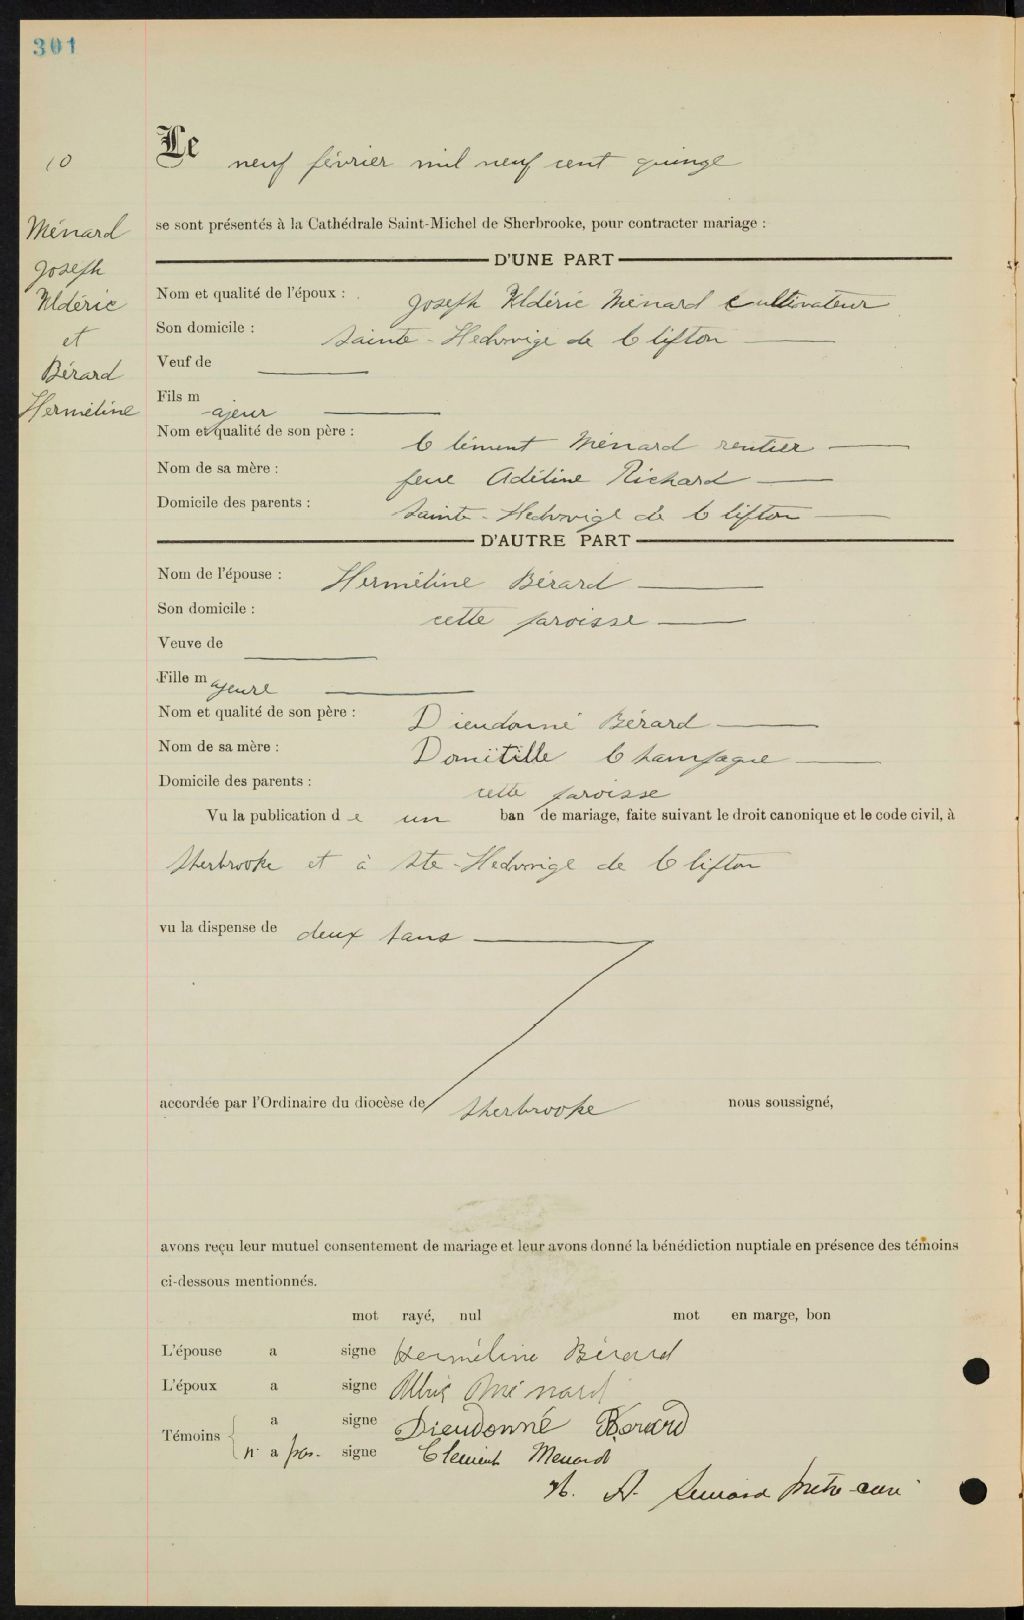 301
10
Le neuf février mil neuf cent quinze
Ménard
Joseph
Uldéric
et
Bérard
Herméline
se sont présentés à la Cathédrale Saint-Michel de Sherbrooke, pour contracter mariage :
D'UNE PART
Nom et qualité de l'époux : Joseph Uldéric Ménard cultivateur
Son domicile : Sainte-Hedwige de Clifton
Veuf de
Fils majeur
Nom et qualité de son père : Clément Ménard rentier
Nom de sa mère : feue Adéline Richard
Domicile des parents : Sainte-Hedwige de Clifton
D'AUTRE PART
Nom de l'épouse : Herméline Bérard
Son domicile : cette paroisse
Veuve de
Fille majeure
Nom et qualité de son père : Dieudonné Bérard
Nom de sa mère : Domitille Champagne
Domicile des parents : cette paroisse
Vu la publication de un ban de mariage, faite suivant le droit canonique et le code civil, à
Sherbrooke et à Ste-Hedwige de Clifton
vu la dispense de deux bans
accordée par l'Ordinaire du diocèse de Sherbrooke nous soussigné,
avons reçu leur mutuel consentement de mariage et leur avons donné la bénédiction nuptiale en présence des témoins
ci-dessous mentionnés.
mot rayé, nul mot en marge, bon
L'épouse a signe Herméline Bérard
L'époux a signe Ménard
Témoins a signe Dieudonné Bérard
n' a pas signe Clément Menard
A. prêtre-curé